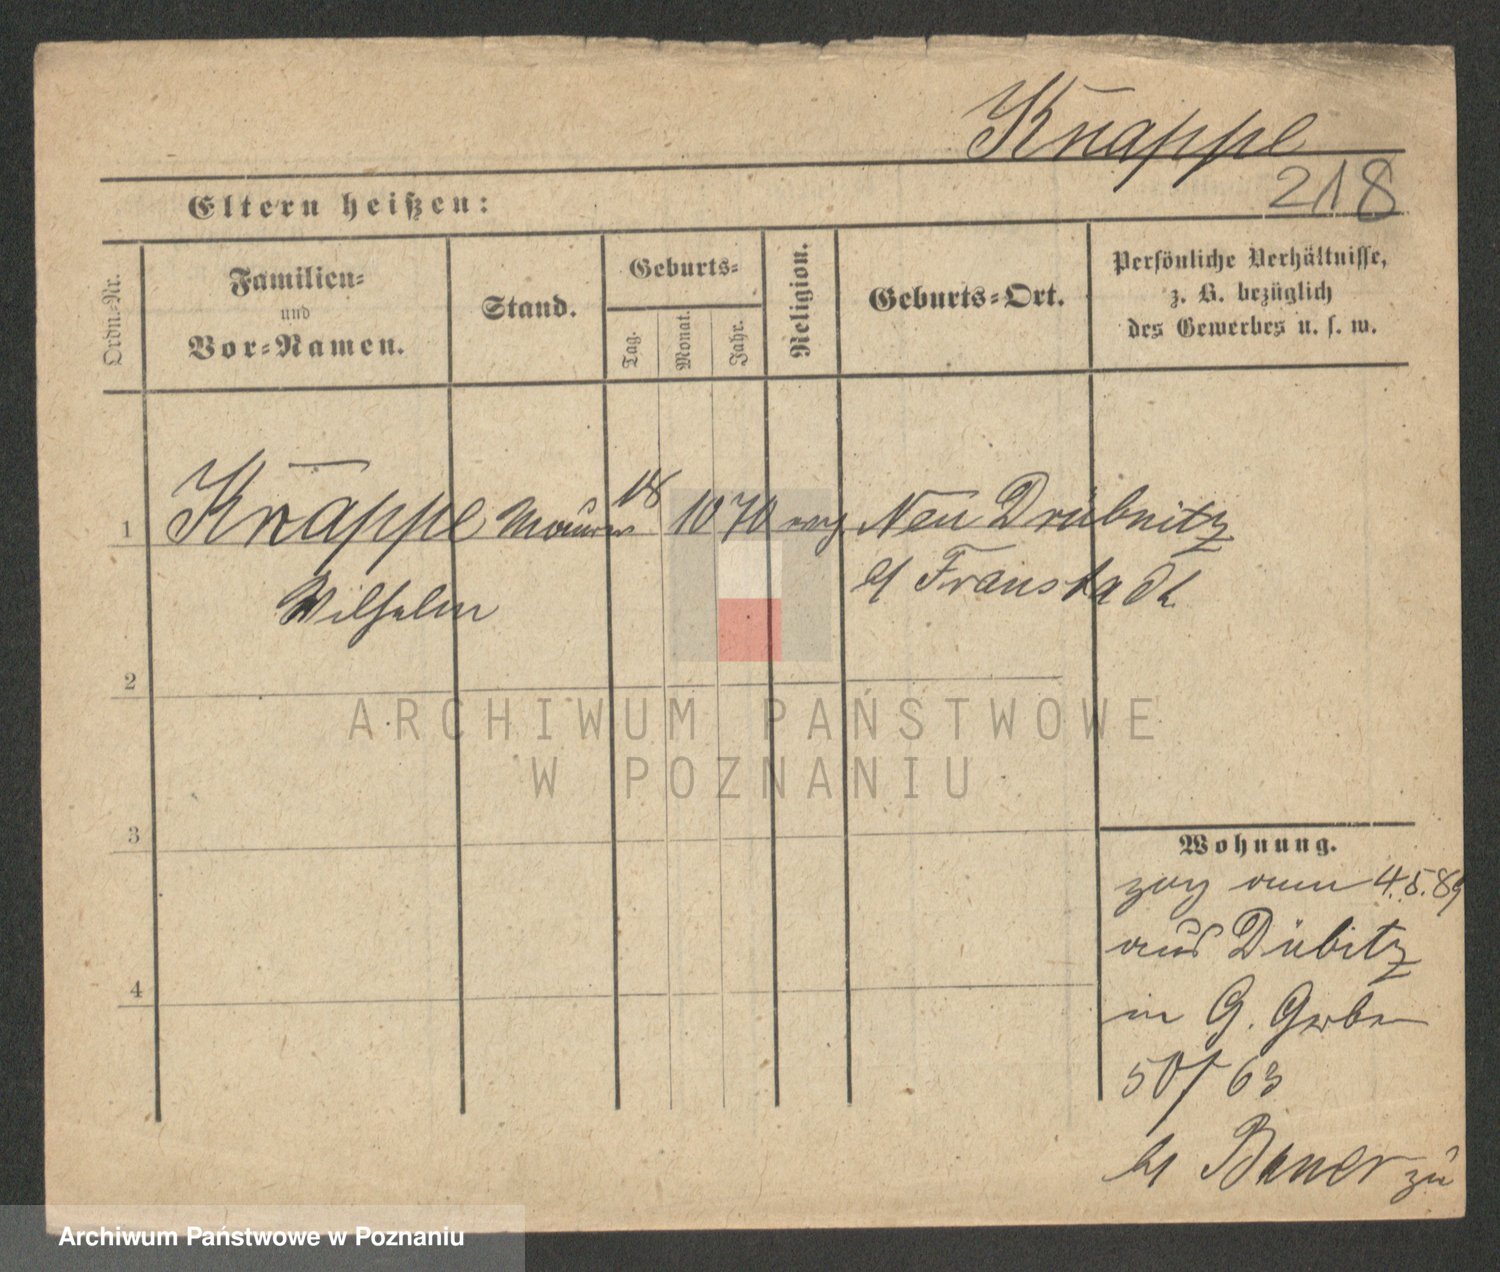 Knappe
218
Eltern heißen:
Ordn.-Nr.
Familien-
und
Vor-Namen.
Stand.
Geburts-
Tag.
Monat.
Jahr.
Religion.
Geburts-Ort.
Persönliche Verhältnisse,
z. B. bezüglich
des Gewerbes u. s. w.
1 Knappe Maurer 18 10 70 evg Neu Drübnitz
Wilhelm
Fraustadt
2
ARCHIWUM PAŃSTWOWE
W POZNANIU
3
Wohnung.
zog am 4.5.89
aus Dübitz
in G. Gerber
50/63
Bauer zu
4
Archiwum Państwowe w Poznaniu